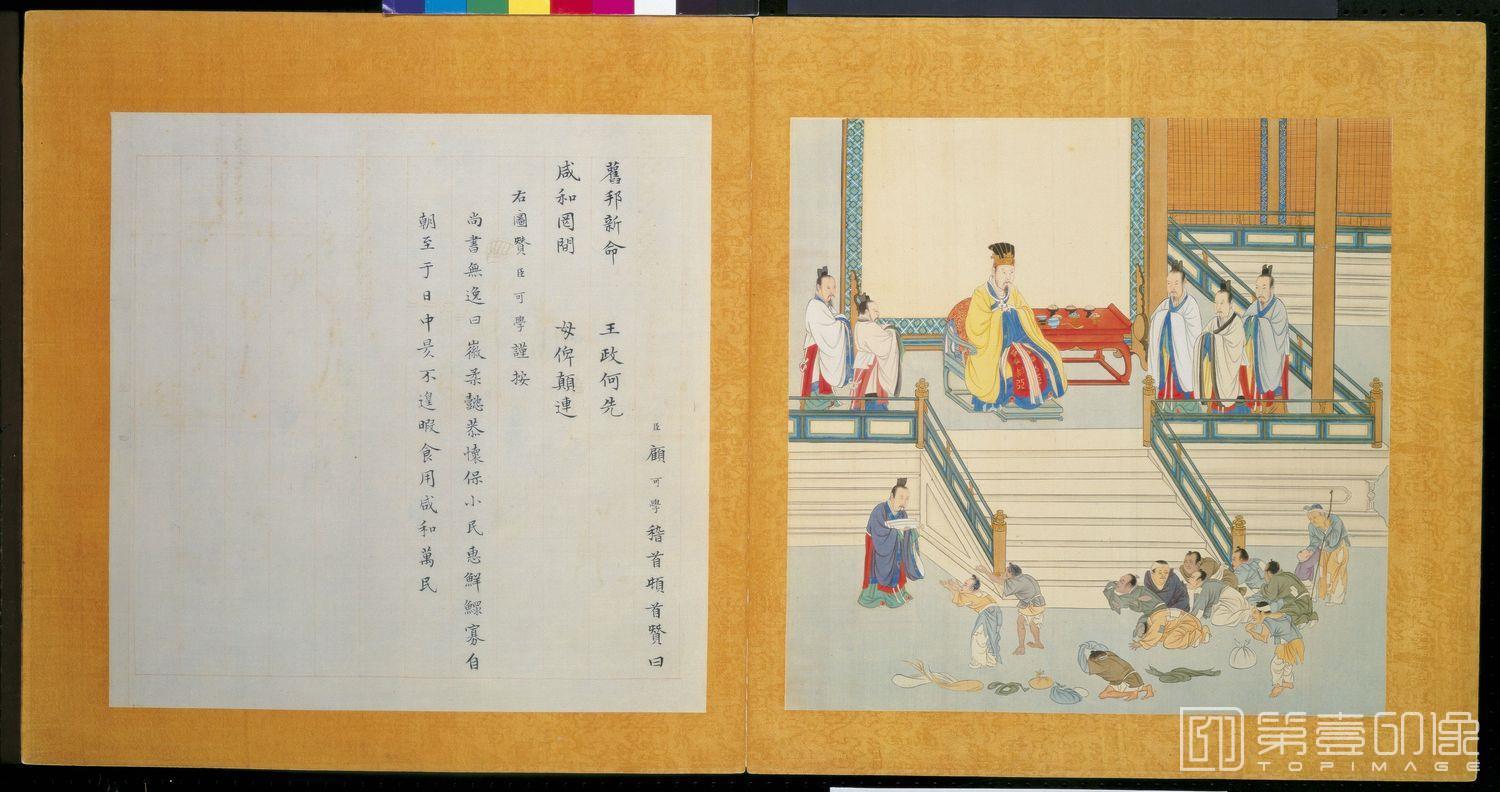 臣顧可學稽首頓首贊曰
舊邦新命　王政何先
咸和罔間　毋俾顛連
右圖贊臣可學謹按
尚書無逸曰徽柔懿恭懷保小民惠鮮鰥寡自
朝至于日中昃不遑暇食用咸和萬民
第壹印像
TOPIMAGE